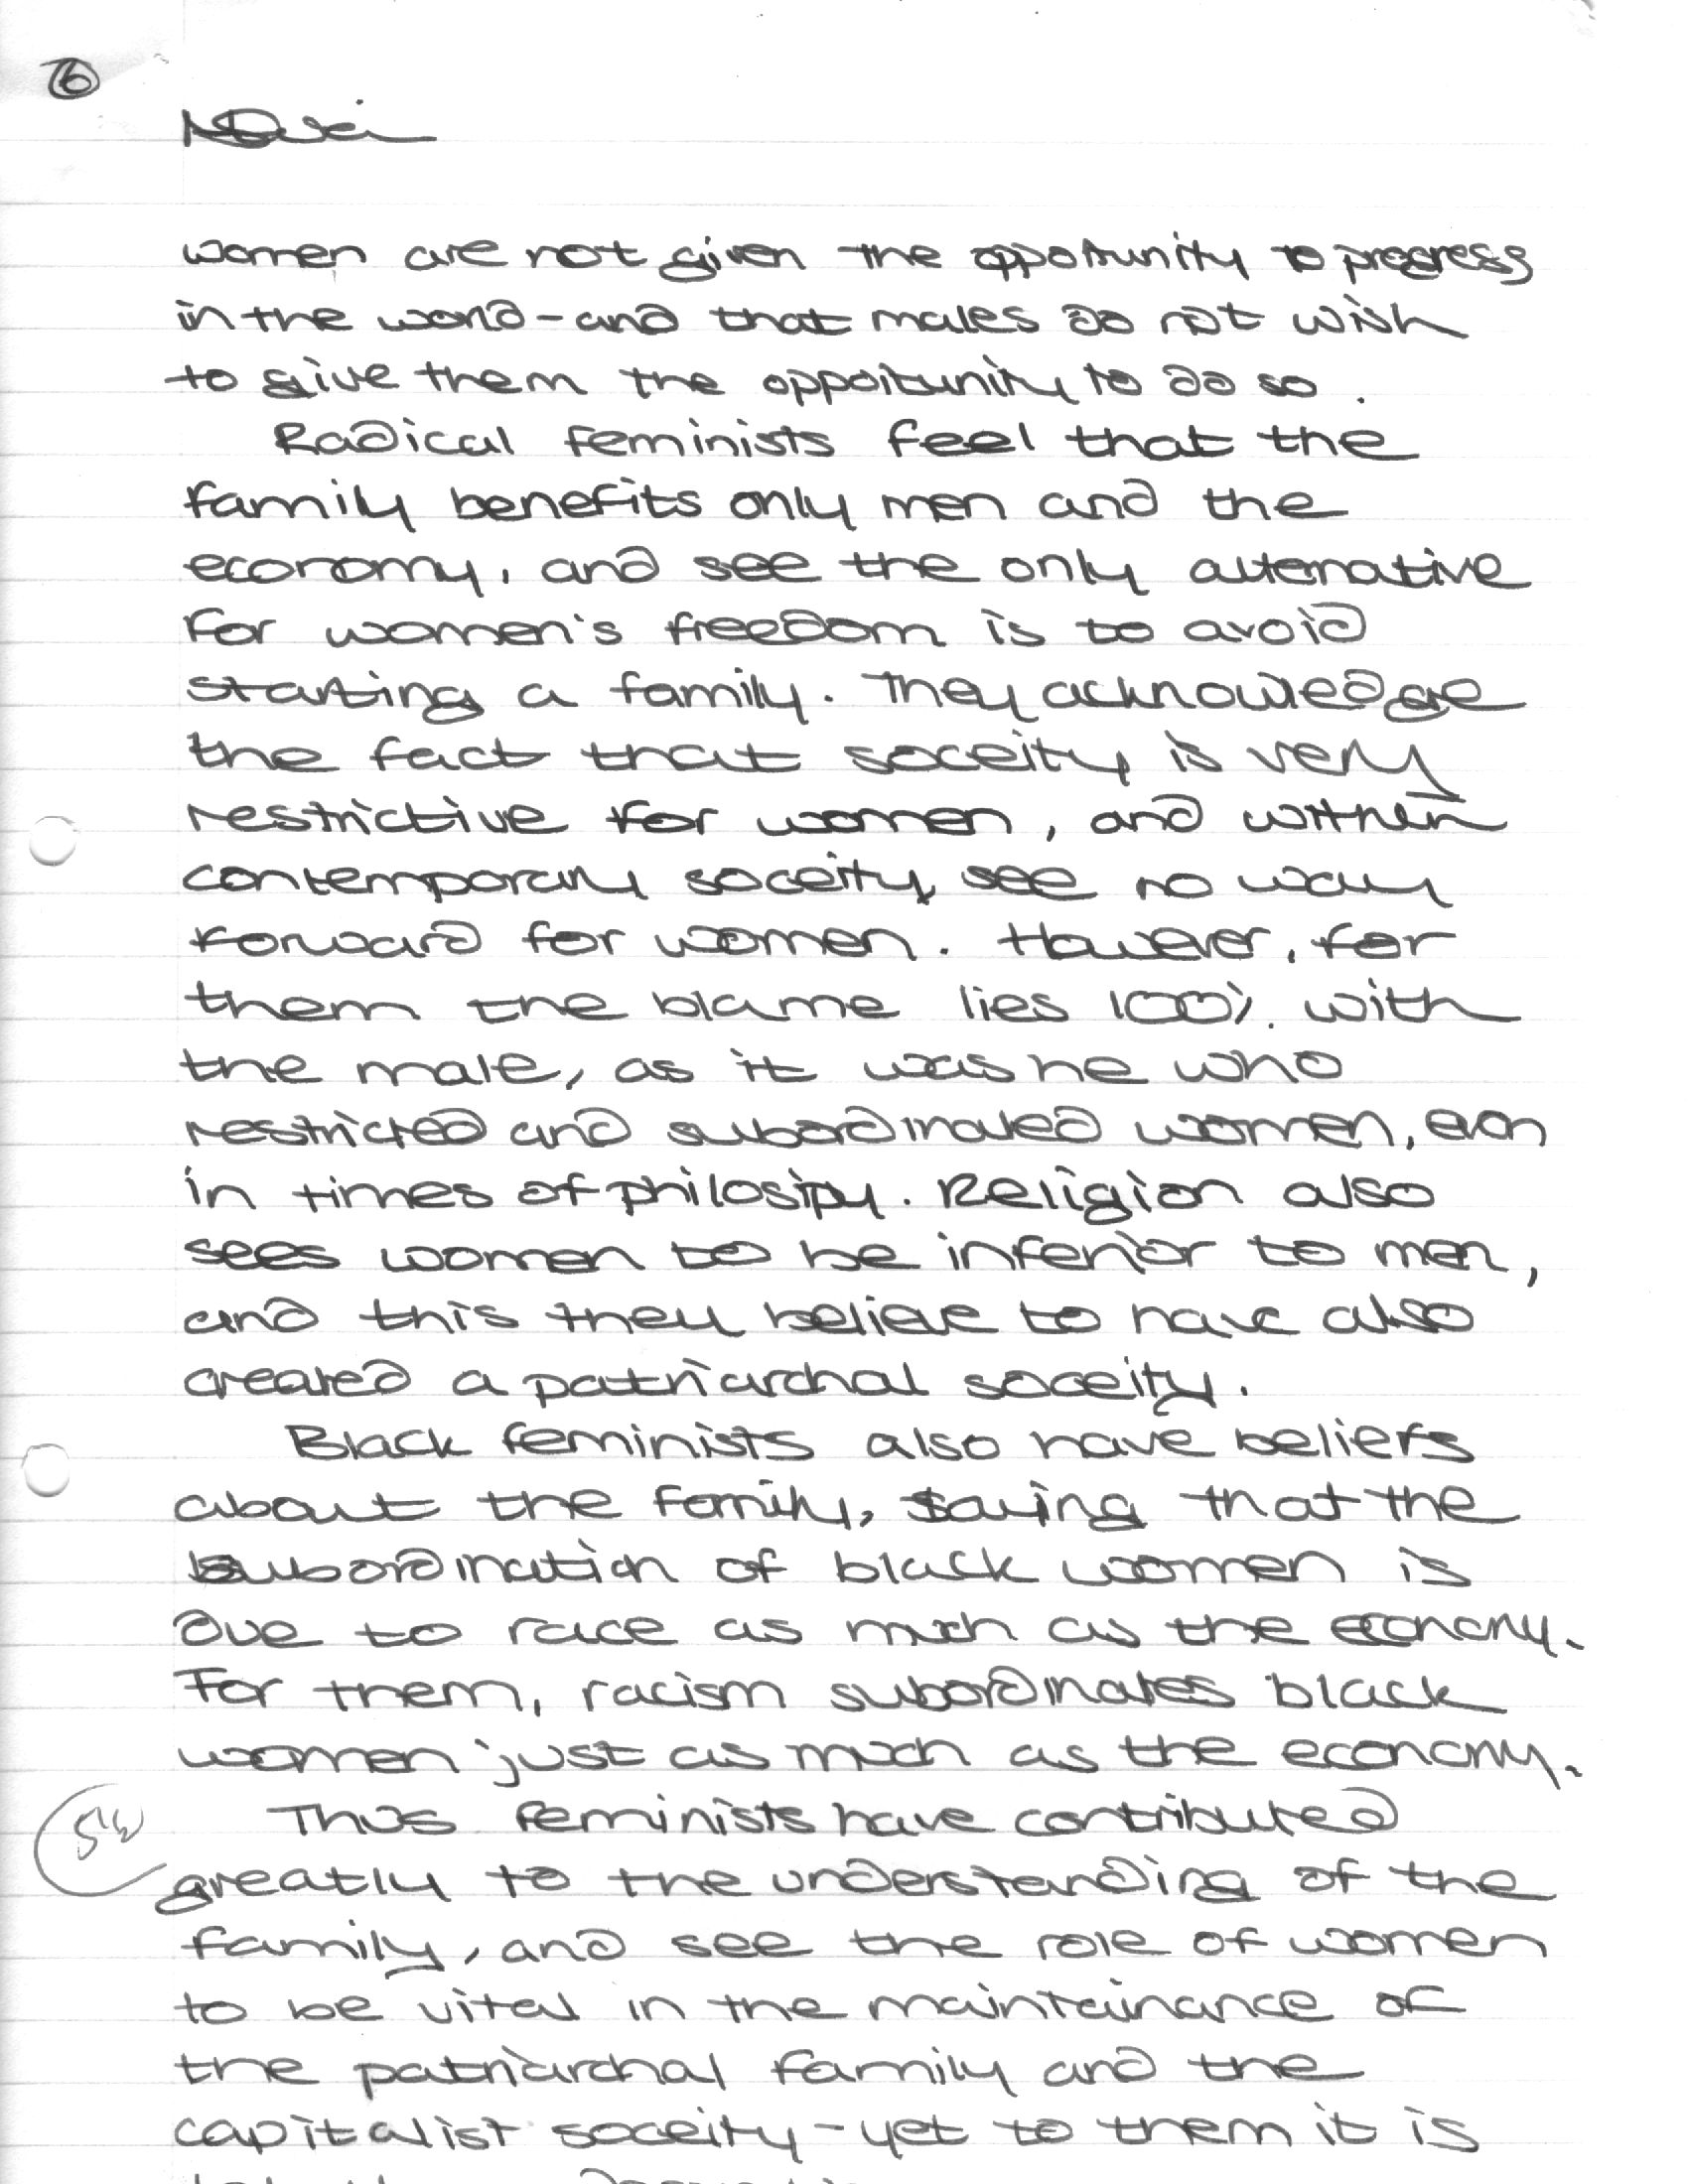 6
women are not given the oppotunity to progress
in the world - and that males do not wish
to give them the opportunity to do so.
Radical feminists feel that the
family benefits only men and the
economy, and see the only alternative
for women's freedom is to avoid
starting a family. They acknowledge
the fact that soceity is very
restrictive for women, and within
contemporary soceity, see no way
forward for women. However, for
them the blame lies 100% with
the male, as it was he who
restricted and subordinated women, even
in times of philosipy. Religion also
sees women to be inferior to men,
and this they believe to have also
created a patriarchal soceity.
Black feminists also have beliefs
about the family, saying that the
subordination of black women is
due to race as much as the economy.
For them, racism subordinates black
women just as much as the economy.
Thus feminists have contributed
greatly to the understanding of the
family, and see the role of women
to be vital in the maintainance of
the patriarchal family and the
capitalist soceity - yet to them it is